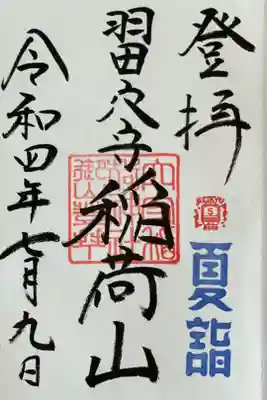 登拝
夏詣
羽田穴守稲荷山
令和四年七月九日